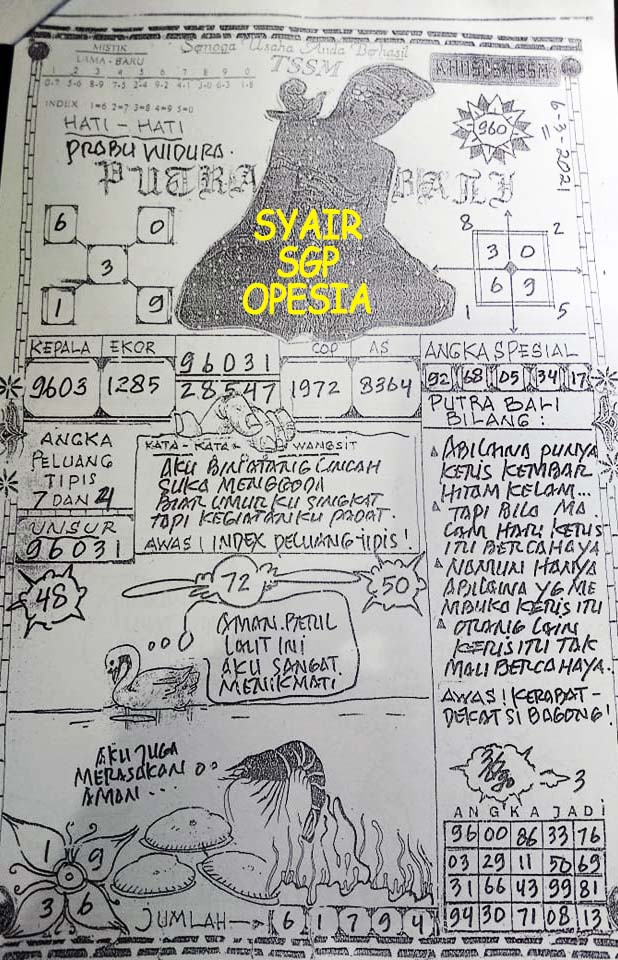 MISTIK
LAMA - BARU
Semoga Usaha Anda Berhasil
TSSM
KHUSUS TSSM
1 2 3 4 5 6 7 8 9 0
INDEX 1=6 2=7 3=8 4=9 5=0
HATI - HATI
PRABU WIDURA.
960
6-3-2021
PUTRA BALI
6 0
3
1 9
8 2
3 0
6 9
1 5
SYAIR
SGP
OPESIA
KEPALA EKOR
9603 1285
96031
28547
COP AS
1972 8364
ANGKA SPESIAL
92 68 05 34 17
ANGKA
PELUANG
TIPIS
7 DAN 4
UNSUR
96031
KATA - KATA - WANGSIT
AKU BINATANG LINCAH
SUKA MENGGODA
BIAR UMUR KU SINGKAT
TAPI KEGIATANKU PADAT.
AWAS! INDEX PELUANG TIPIS!
PUTRA BALI
BILANG :
ABILAWA PUNYA
KERIS KEMBAR
HITAM KELAM...
TAPI BILA MA
LAM HARI KERIS
ITU BERCAHAYA
NAMUN HANYA
ABILAWA YG ME
MBUKA KERIS ITU
ORANG LAIN
KERIS ITU TAK
MAU BERCAHAYA.
AWAS! KERABAT-
DEKAT SI BAGONG!
48
72
50
AMAN.
LAUT INI
AKU SANGAT
MENIKMATI
AKU JUGA
MERASAKAN
AMAN ...
1 9
3 6
JUMLAH 6 1 7 9 4
3
ANGKA JADI
96 00 86 33 76
03 29 11 50 69
31 66 43 99 81
94 30 71 08 13